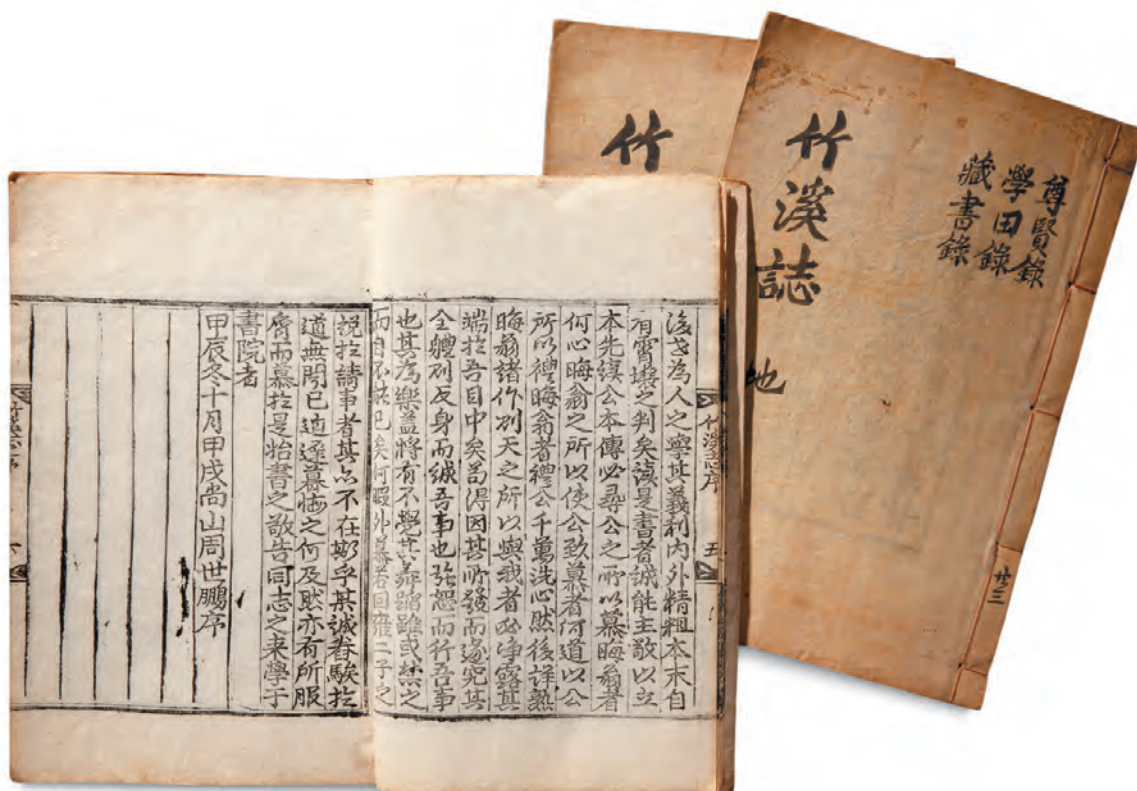 竹
竹溪誌
地
尊賢錄
學田錄
藏書錄
廿三
竹溪志序
五
為人之學其義利內外精粗本末自
有霄壤之判矣讀是書者誠能主敬以立
本先讀公本傳必尋公之所以慕晦翁者
何心晦翁之所以使公致慕者何道以公
所以禮晦翁者禮公千萬洗心然後詳熟
晦翁諸作則天之所以與我者必露其
端於吾目中矣苟得因其所發而遂究其
全體則反身而誠吾事也強恕而行吾事
也其為樂蓋將有不覺其舞蹈雖或禁之
而自不能已矣何暇外慕若回雍二子之
說於請事者其亦不在斯乎某誠騃於
道無聞已邁遲暮悔之何及然亦有所服
膺而慕於是書之敬告同志之來學于
書院者
甲辰冬十月甲戌尙山周世鵬序